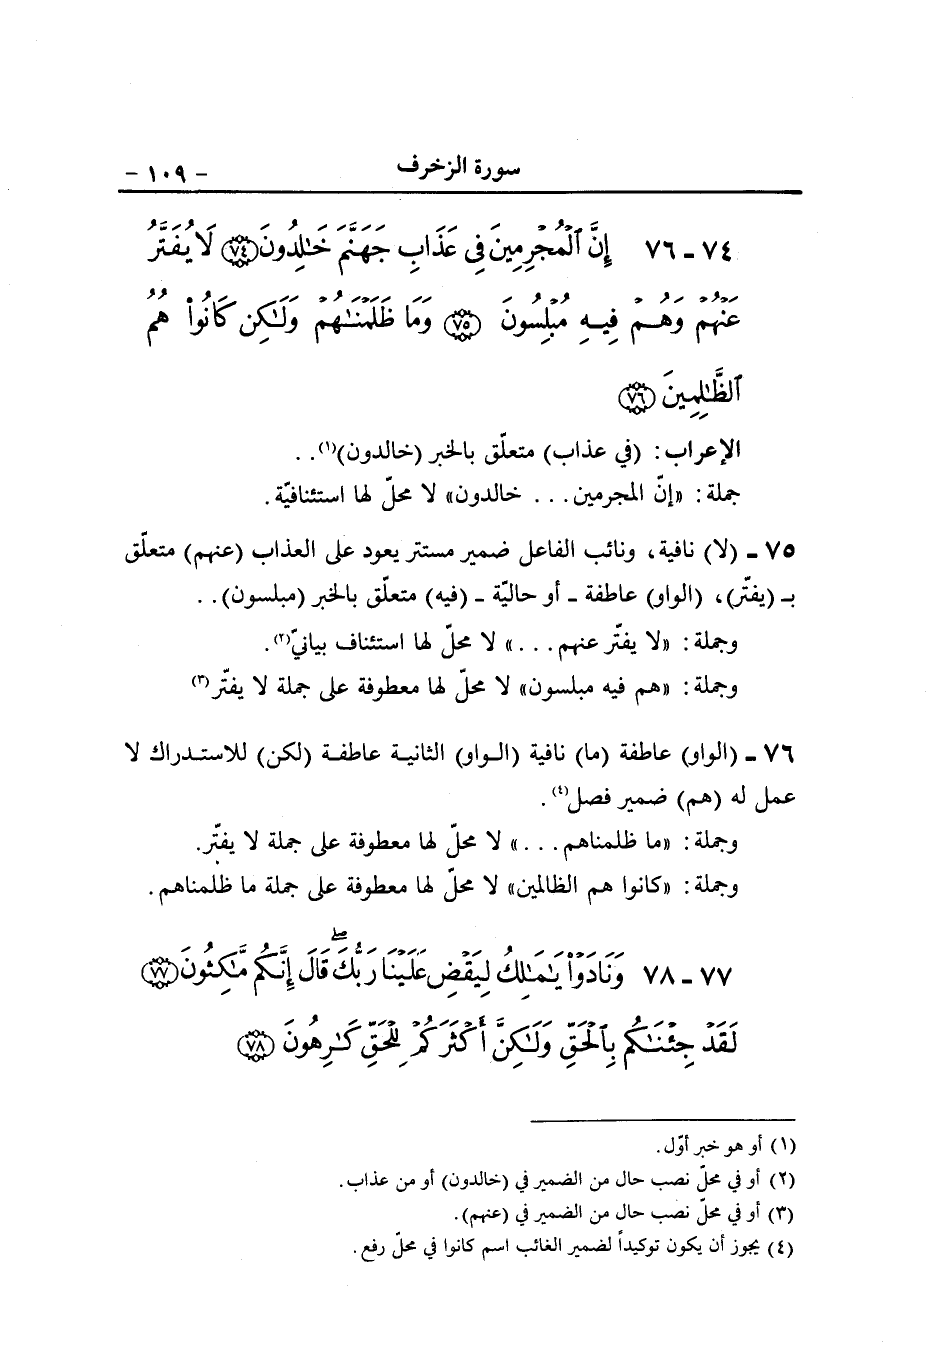 سورة الزخرف - ١٠٩ -
٧٤ ـ ٧٦ إِنَّ ٱلْمُجْرِمِينَ فِى عَذَابِ جَهَنَّمَ خَٰلِدُونَ ﴿٧٤﴾ لَا يُفَتَّرُ
عَنْهُمْ وَهُمْ فِيهِ مُبْلِسُونَ ﴿٧٥﴾ وَمَا ظَلَمْنَٰهُمْ وَلَٰكِن كَانُوا۟ هُمُ
ٱلظَّٰلِمِينَ ﴿٧٦﴾
الإعراب: (في عذاب) متعلّق بالخبر (خالدون)(١). .
جملة: «إنّ المجرمين. . . خالدون» لا محلّ لها استئنافيّة.
٧٥ ـ (لا) نافية، ونائب الفاعل ضمير مستتر يعود على العذاب (عنهم) متعلّق
بـ (يفتّر)، (الواو) عاطفة ـ أو حاليّة ـ (فيه) متعلّق بالخبر (مبلسون). .
وجملة: «لا يفتّر عنهم. . .» لا محلّ لها استئناف بيانيّ(٢).
وجملة: «هم فيه مبلسون» لا محلّ لها معطوفة على جملة لا يفتّر(٣)
٧٦ ـ (الواو) عاطفة (ما) نافية (الـواو) الثانيـة عاطفـة (لكن) للاستـدراك لا
عمل له (هم) ضمير فصل(٤).
وجملة: «ما ظلمناهم. . .» لا محلّ لها معطوفة على جملة لا يفتّر.
وجملة: «كانوا هم الظالمين» لا محلّ لها معطوفة على جملة ما ظلمناهم.
٧٧ ـ ٧٨ وَنَادَوْا۟ يَٰمَٰلِكُ لِيَقْضِ عَلَيْنَا رَبُّكَ ۖ قَالَ إِنَّكُم مَّٰكِثُونَ ﴿٧٧﴾
لَقَدْ جِئْنَٰكُم بِٱلْحَقِّ وَلَٰكِنَّ أَكْثَرَكُمْ لِلْحَقِّ كَٰرِهُونَ ﴿٧٨﴾
(١) أو هو خبر أوّل.
(٢) أو في محلّ نصب حال من الضمير في (خالدون) أو من عذاب.
(٣) أو في محلّ نصب حال من الضمير في (عنهم).
(٤) يجوز أن يكون توكيداً لضمير الغائب اسم كانوا في محلّ رفع.